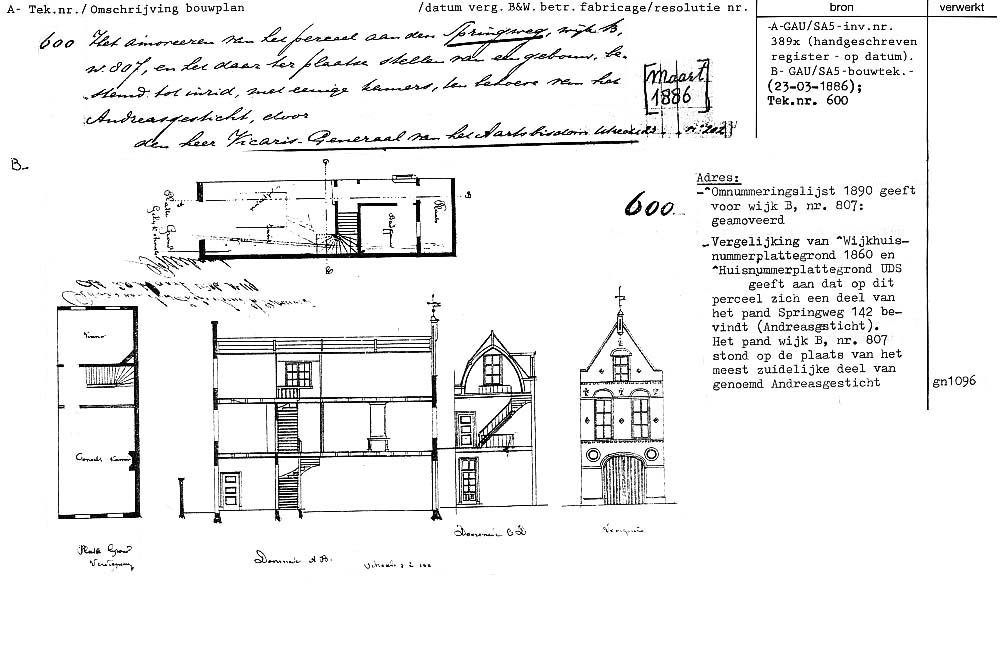 A- Tek.nr./Omschrijving bouwplan /datum verg. B&W. betr. fabricage/resolutie nr. bron verwerkt
600 Het amoveeren van het perceel aan den Springweg, wijk B,
n.807, en het daar ter plaatse stellen van een gebouw, be-
stemd tot inrid, met eenige kamers, ten behoeve van het
Andreasgesticht, door
den heer Vicaris-Generaal van het Aartsbisdom Utrecht
Maart
1886
-A-GAU/SA5-inv.nr.
389x (handgeschreven
register - op datum).
B- GAU/SA5-bouwtek.-
(23-03-1886);
Tek.nr. 600
B-
600
Adres:
-^Omnummeringslijst 1890 geeft
voor wijk B, nr. 807:
geamoveerd
-Vergelijking van ^Wijkhuis-
nummerplattegrond 1860 en
^Huisnummerplattegrond UDS
geeft aan dat op dit
perceel zich een deel van
het pand Springweg 142 be-
vindt (Andreasgesticht).
Het pand wijk B, nr. 807
stond op de plaats van het
meest zuidelijke deel van
genoemd Andreasgesticht
gn1096
Platte Grond
Kamer
Platte Grond
Verdieping
Doorsnede A B.
Doorsnede C D